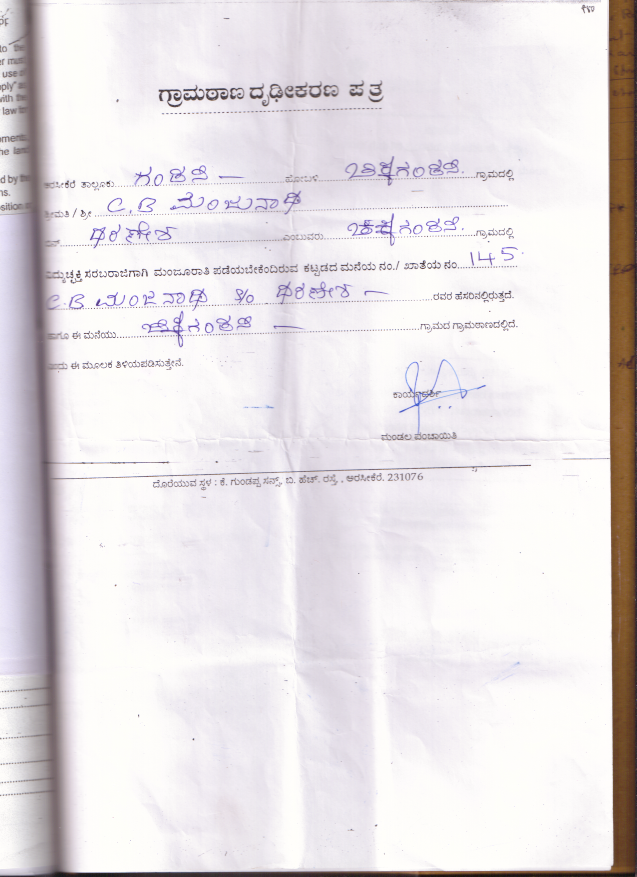 ೯೪೦
ಗ್ರಾಮಠಾಣ ದೃಢೀಕರಣ ಪತ್ರ
ಅರಸೀಕೆರೆ ತಾಲ್ಲೂಕು ಗಂಡಸಿ — ಹೋಬಳಿ ಚಿಕ್ಕಗಂಡಸಿ. ಗ್ರಾಮದಲ್ಲಿ
ಶ್ರೀಮತಿ / ಶ್ರೀ C.B ಮಂಜುನಾಥ
ಬಿನ್ ಧರಣೇಶ ಎಂಬುವರು ಚಿಕ್ಕಗಂಡಸಿ. ಗ್ರಾಮದಲ್ಲಿ
ವಿದ್ಯುಚ್ಛಕ್ತಿ ಸರಬರಾಜಿಗಾಗಿ ಮಂಜೂರಾತಿ ಪಡೆಯಬೇಕೆಂದಿರುವ ಕಟ್ಟಡದ ಮನೆಯ ನಂ./ ಖಾತೆಯ ನಂ. 145.
C.B ಮಂಜನಾಥ S/o ಧರಣೇಶ — ರವರ ಹೆಸರಿನಲ್ಲಿರುತ್ತದೆ.
ಹಾಗೂ ಈ ಮನೆಯು ಚಿಕ್ಕಗಂಡಸಿ — ಗ್ರಾಮದ ಗ್ರಾಮಠಾಣದಲ್ಲಿದೆ.
ಎಂದು ಈ ಮೂಲಕ ತಿಳಿಯಪಡಿಸುತ್ತೇನೆ.
ಕಾರ್ಯದರ್ಶಿ
ಮಂಡಲ ಪಂಚಾಯಿತಿ
ದೊರೆಯುವ ಸ್ಥಳ : ಕೆ. ಗುಂಡಪ್ಪ ಸನ್ಸ್, ಬಿ. ಹೆಚ್. ರಸ್ತೆ, ಅರಸೀಕೆರೆ. 231076